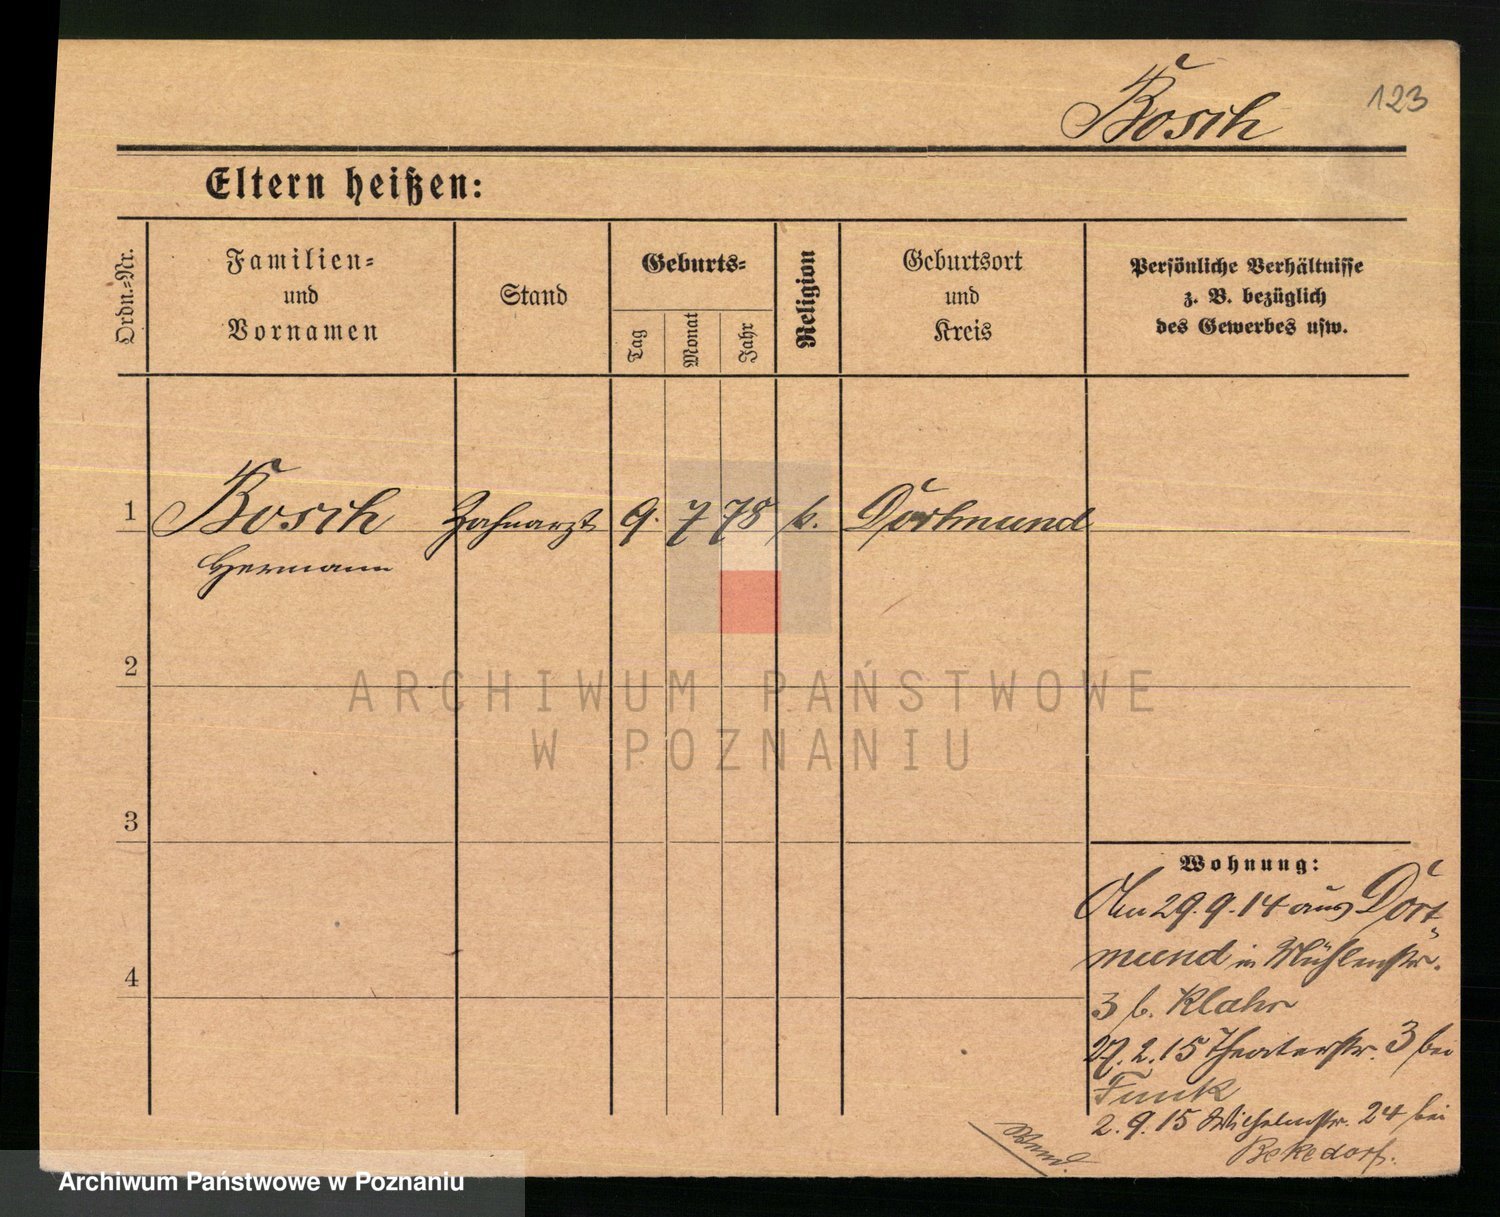 Bosch
123
Eltern heißen:
Ordn.-Nr.
Familien-
und
Vornamen
Stand
Geburts-
Tag
Monat
Jahr
Religion
Geburtsort
und
Kreis
Persönliche Verhältnisse
z. B. bezüglich
des Gewerbes usw.
1 Bosch Zahnarzt 9. 7 78 k. Dortmund
Hermann
2
3
4
Wohnung:
Am 29.9.14 aus Dort-
mund in Mühlenstr.
3 b. Klahr
27.2.15 Theaterstr. 3 bei
Funk
2.9.15 Wilhelmstr. 24 bei
Bekedorf.
Wend.
ARCHIWUM PAŃSTWOWE
W POZNANIU
Archiwum Państwowe w Poznaniu